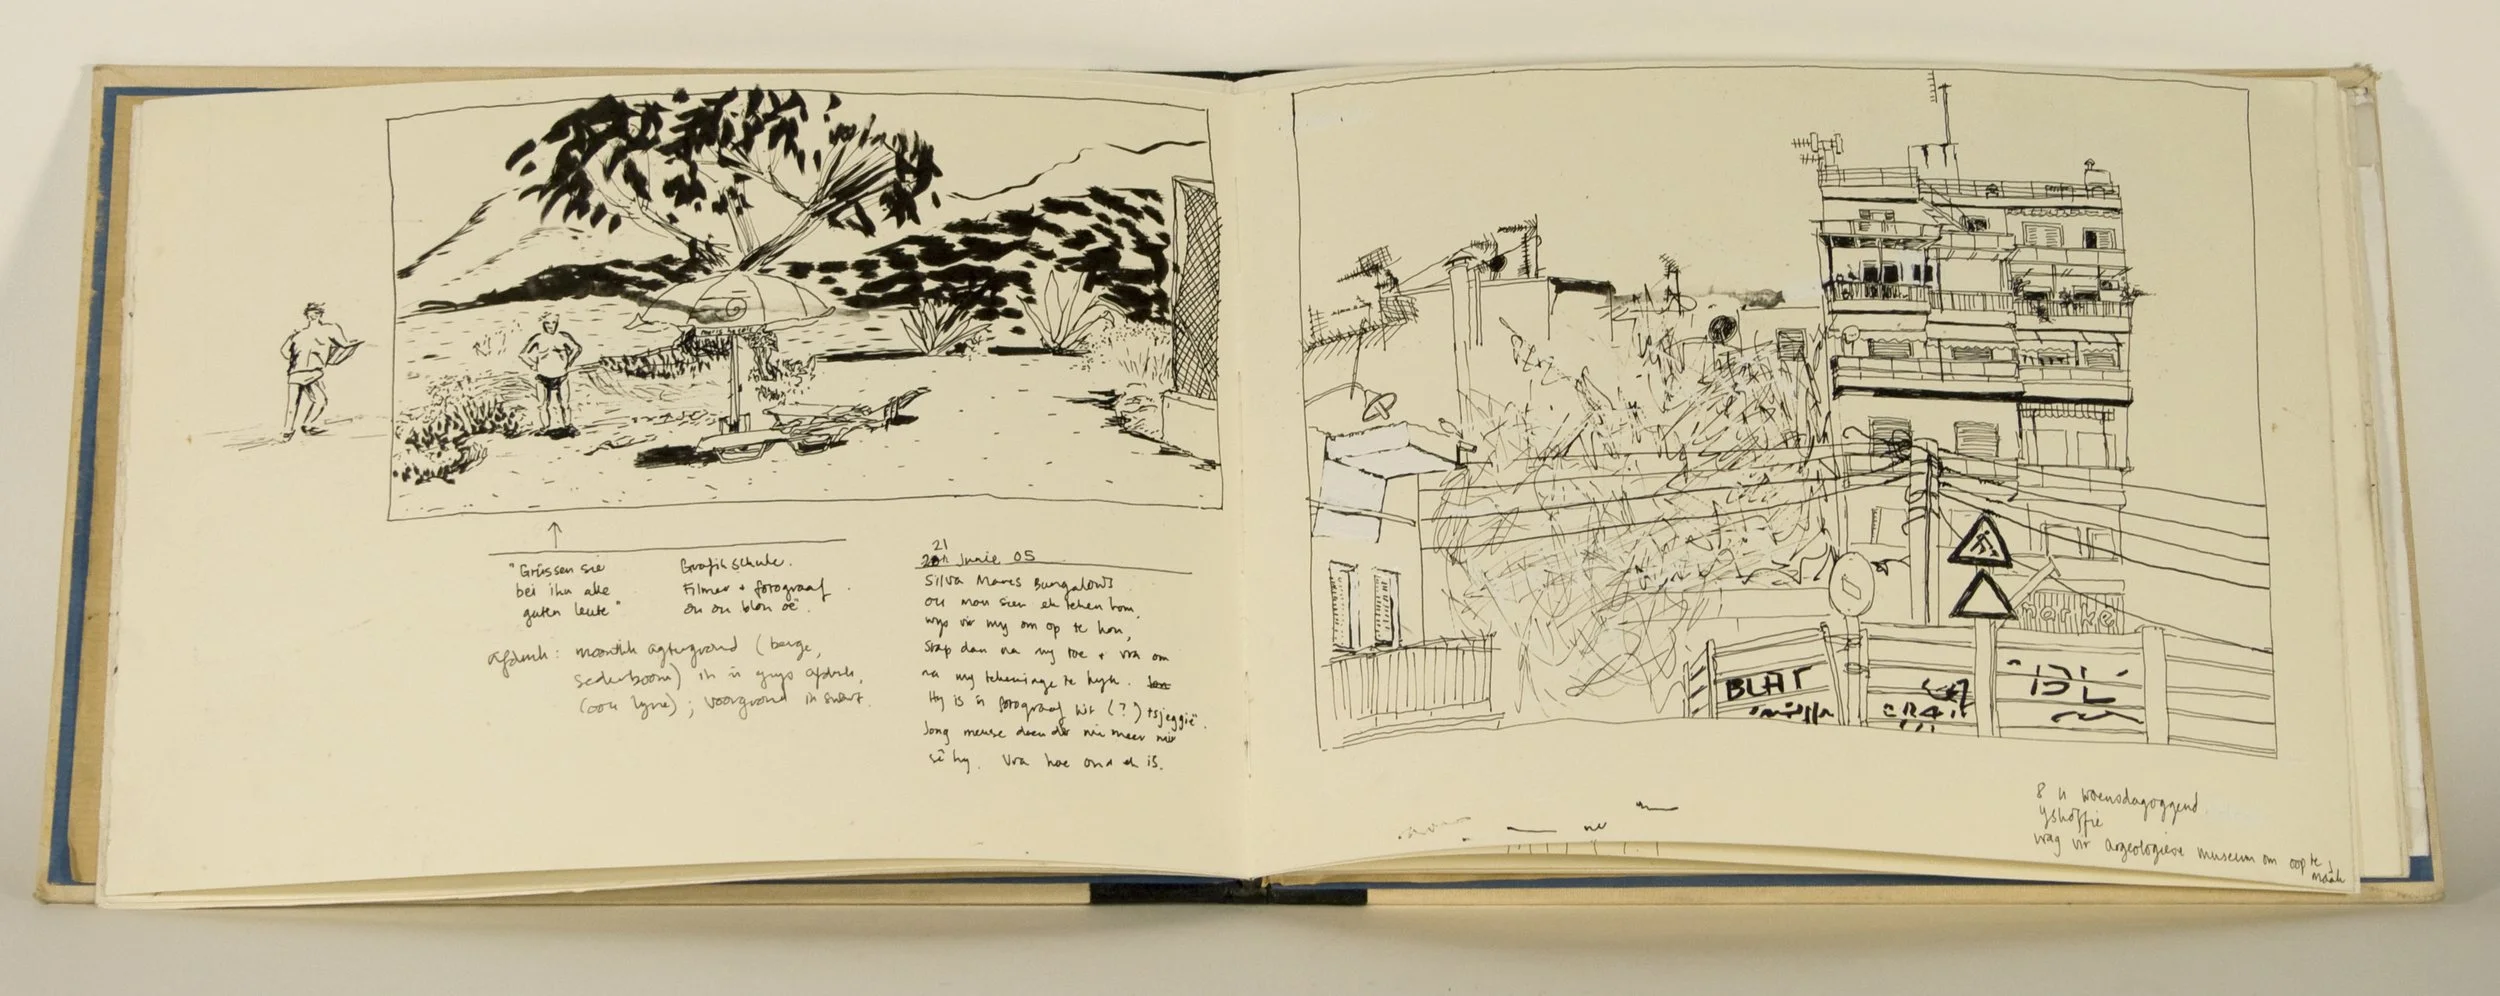 "Grüssen sie
bei ihn alle
guten leute"
Grafikschule.
Filmer + fotograaf.
ou ou blou oë.
afdruk: moontlik agtergrond (berge,
sederboom) in 'n grys afdruk,
(ook lyne); voorgrond in swart.
21 Junie 05
Silva Mares Bungalows
ou man sien ek teken hom,
wys vir my om op te hou,
stap dan na my toe + vra om
na my tekeninge te kyk.
Hy is 'n fotograaf uit (?) tsjeggië.
Jong mense doen dit nie meer nie
sê hy. Vra hoe oud ek is.
BLAT
marke
8 u Woensdagoggend
yskoffie
wag vir argeologiese museum om oop te
maak